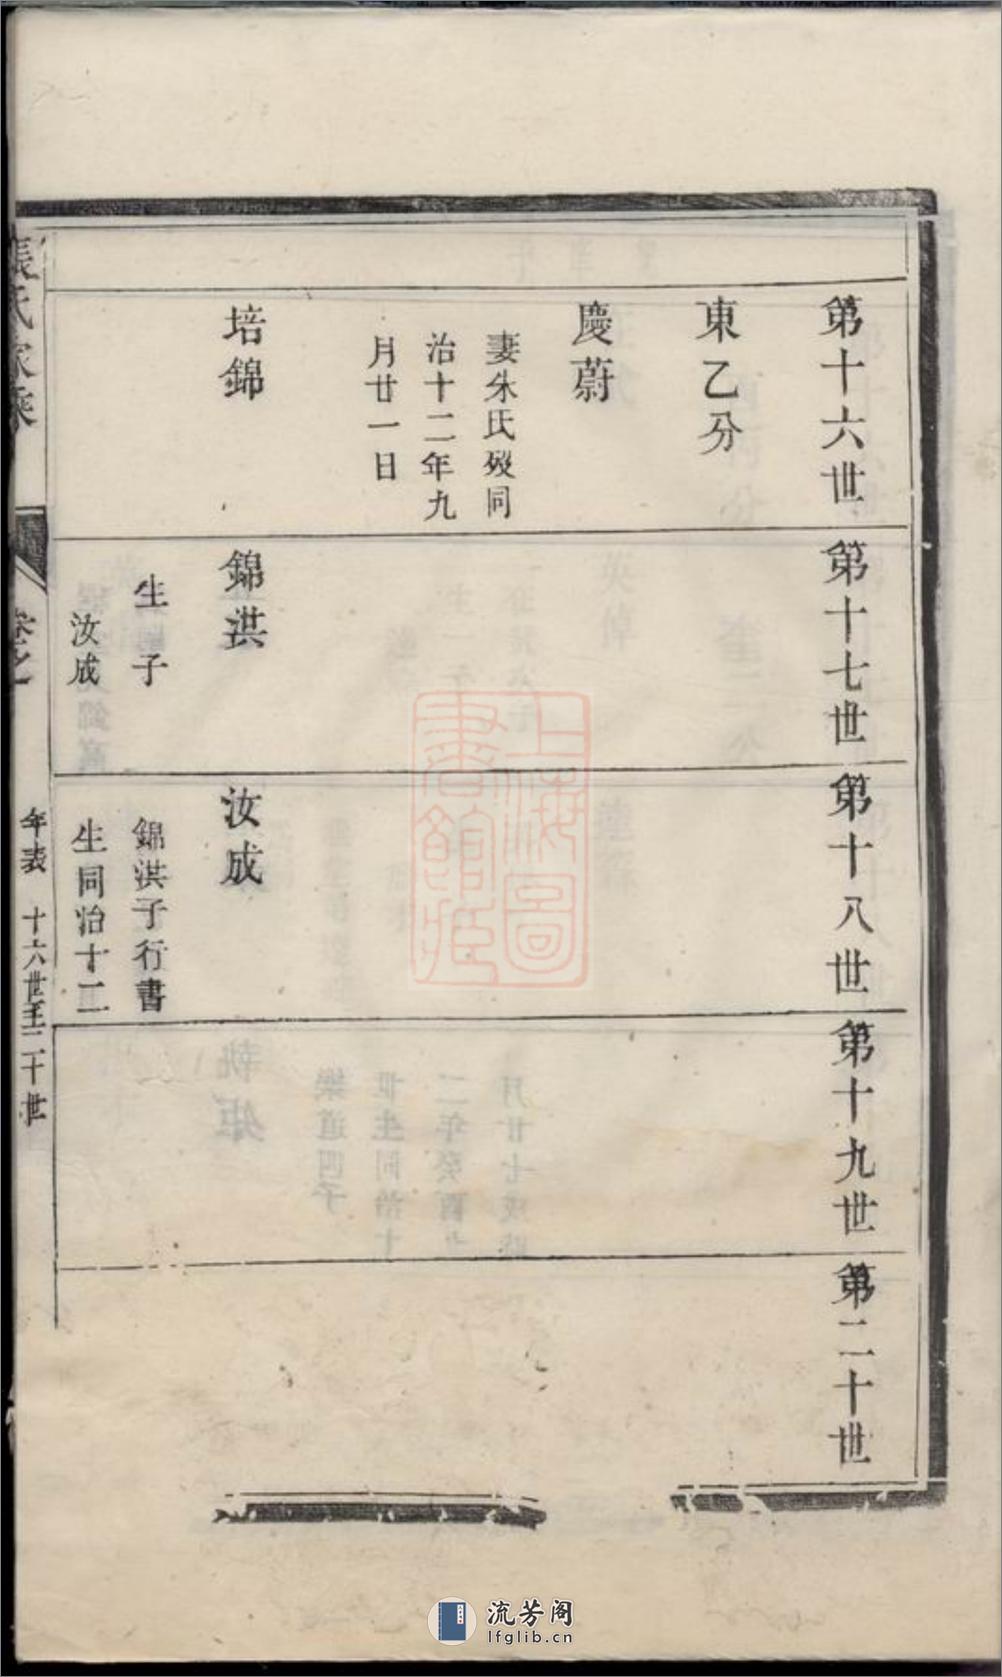 第十六世
東乙分
慶蔚
妻朱氏歿同
治十二年九
月廿一日
培錦
第十七世
錦洪
生子
汝成
第十八世
汝成
錦洪子行書
生同治十二
第十九世
第二十世
張氏家乘
卷之
年表 十六世至二十世
上海圖
書館藏
流芳阁
lfglib.cn